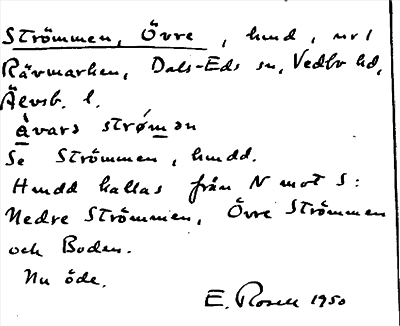 Strömmen, Övre, hmd, nr 1
Rävmarken, Dals-Eds sn, Vedbo hd,
Älvsb. l.
åvara strømən
Se Strömmen, hmdd.
Hmdd kallas från N mot S:
Nedre Strömmen, Övre Strömmen
och Boden.
Nu öde.
E. Rosell 1950